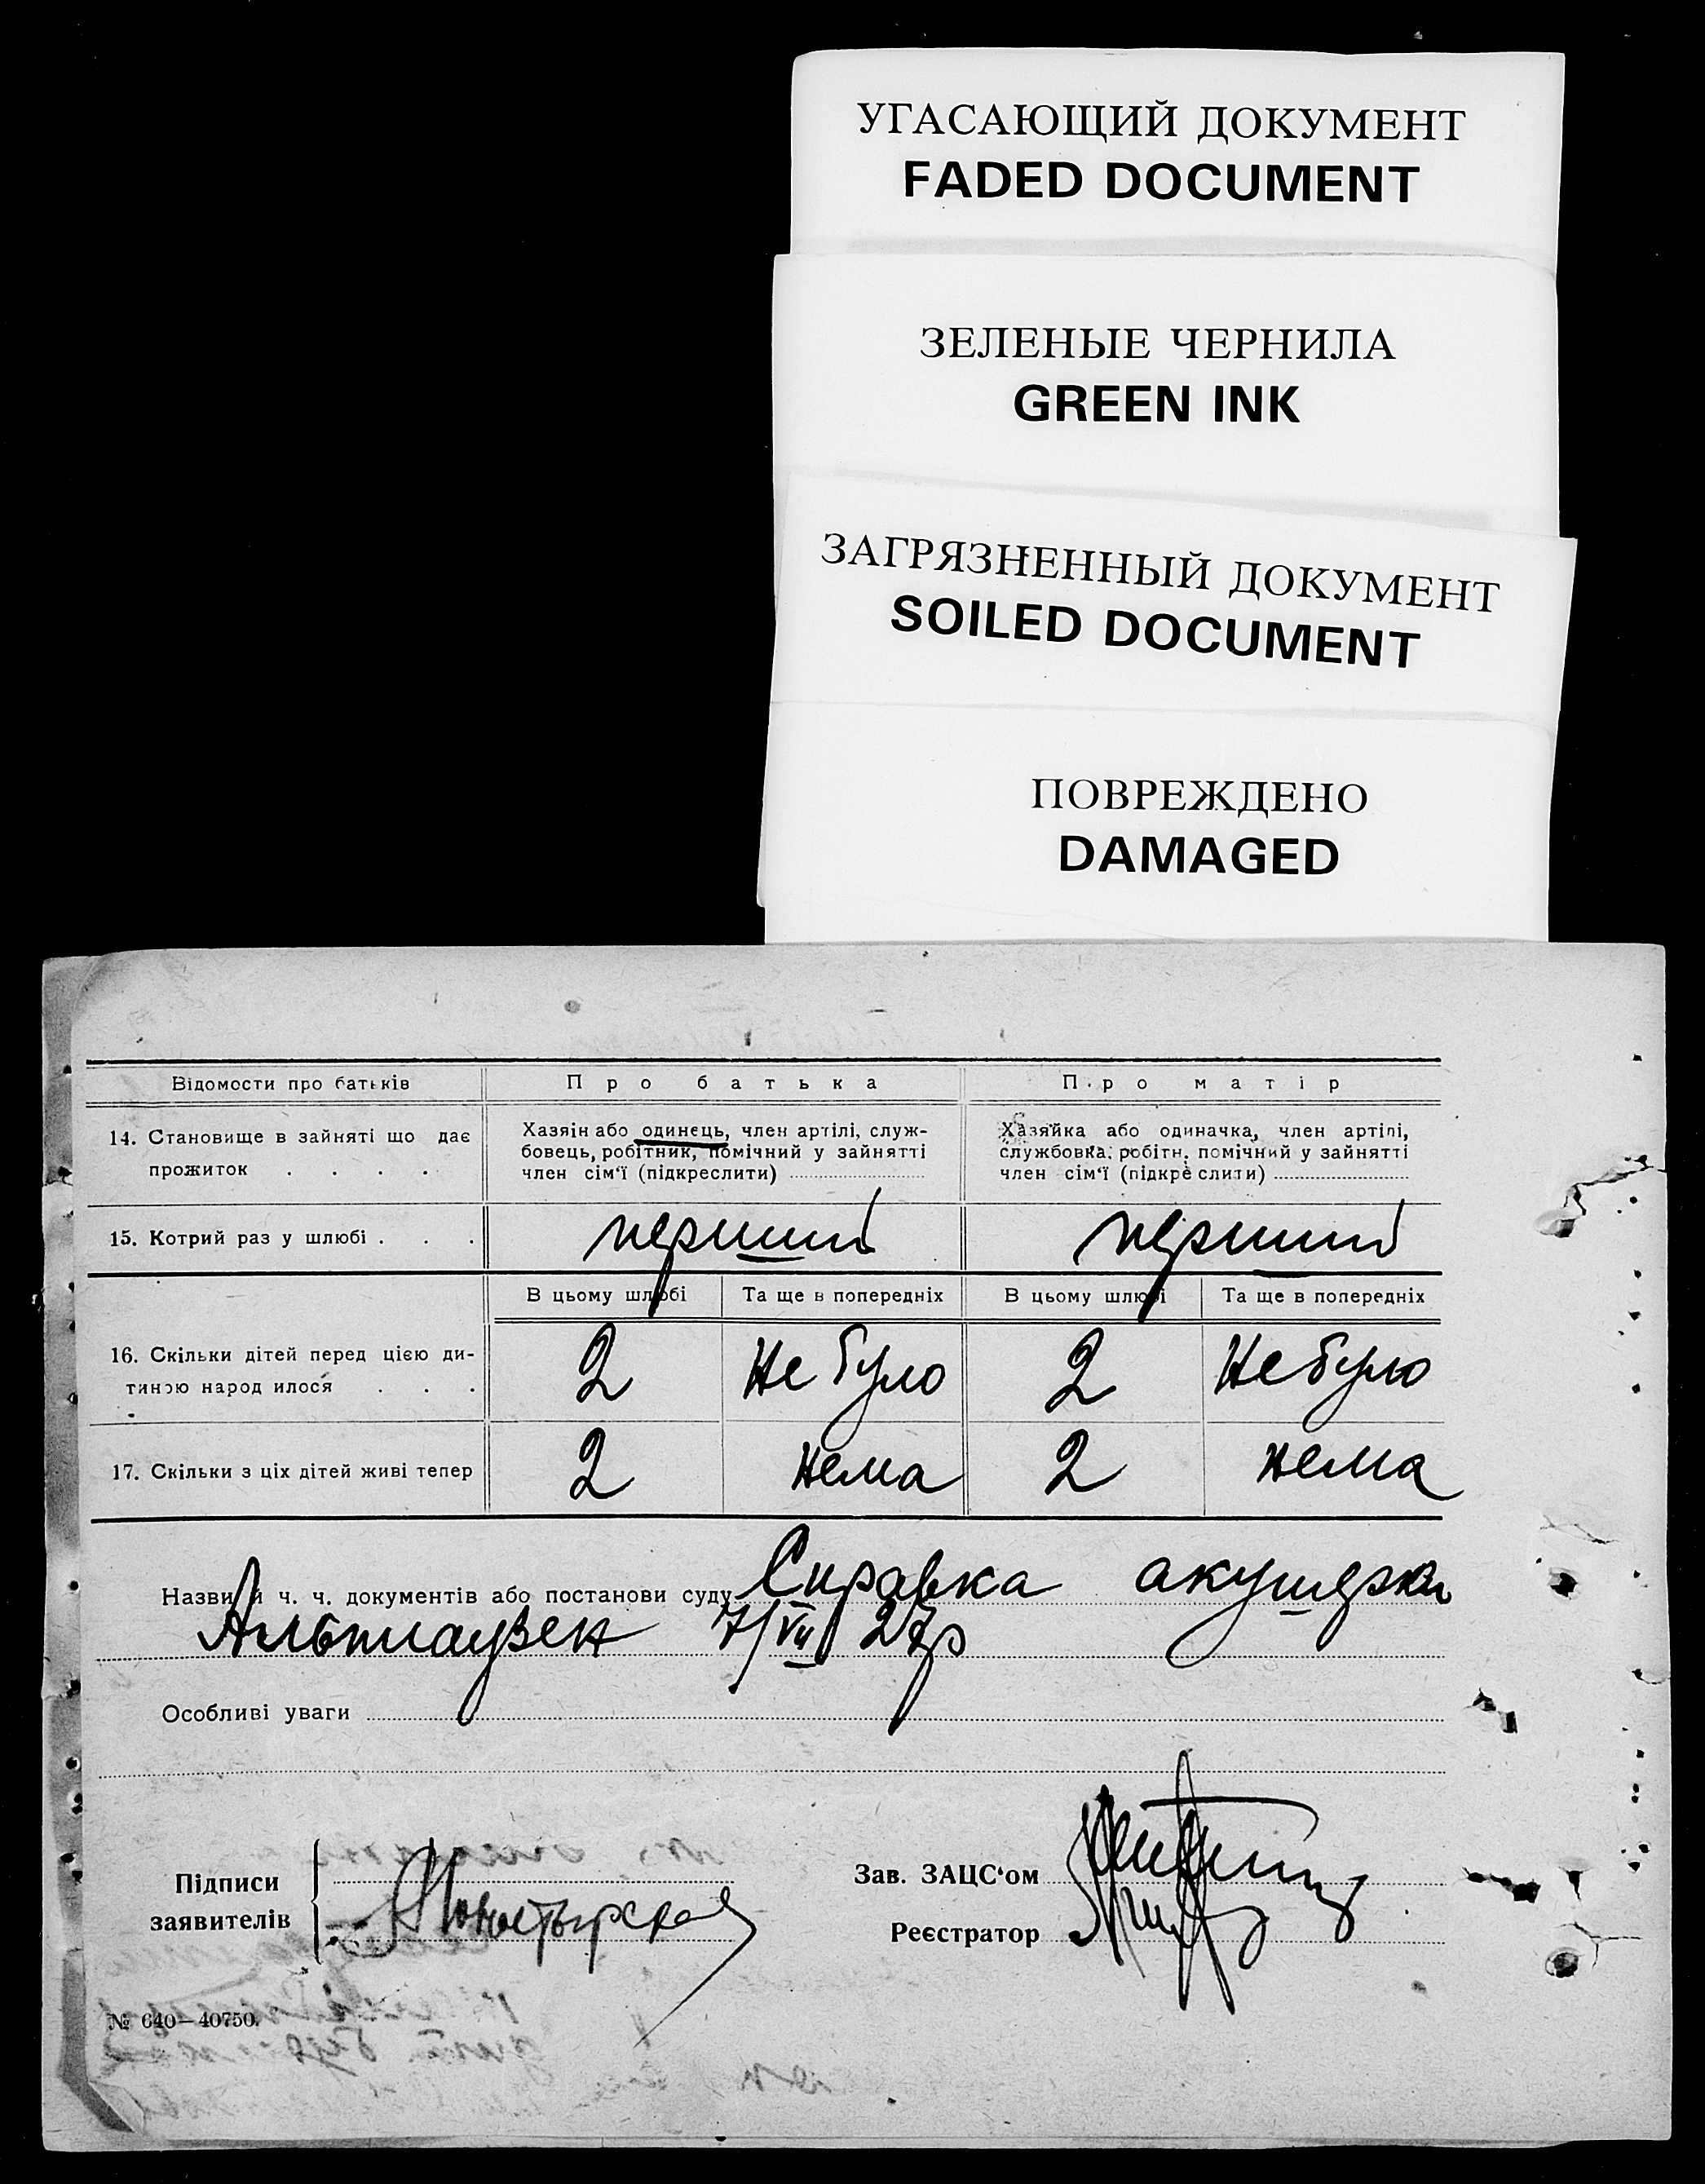 УГАСАЮЩИЙ ДОКУМЕНТ
FADED DOCUMENT
ЗЕЛЕНЫЕ ЧЕРНИЛА
GREEN INK
ЗАГРЯЗНЕННЫЙ ДОКУМЕНТ
SOILED DOCUMENT
ПОВРЕЖДЕНО
DAMAGED
Відомости про батьків
Про батька
Про матір
14. Становище в зайняті що дає
прожиток . . . .
Хазяїн або одинець, член артілі, служ-
бовець, робітник, помічний у зайнятті
член сім'ї (підкреслити)
Хазяйка або одиначка, член артілі,
службовка, робітн. помічний у зайнятті
член сім'ї (підкреслити)
15. Котрий раз у шлюбі . . .
перший
перший
В цьому шлюбі
Та ще в попередніх
В цьому шлюбі
Та ще в попередніх
16. Скільки дітей перед цією ди-
тиною народилося . . .
2
Не було
2
Не було
17. Скільки з ціх дітей живі тепер
2
нема
2
нема
Назви й ч. ч. документів або постанови суду Справка акушерки
Альтгаузен 7/VII 27р
Особливі уваги
Підписи
заявителів
Монастырская
Зав. ЗАЦС'ом
Реєстратор
№ 640—40750.